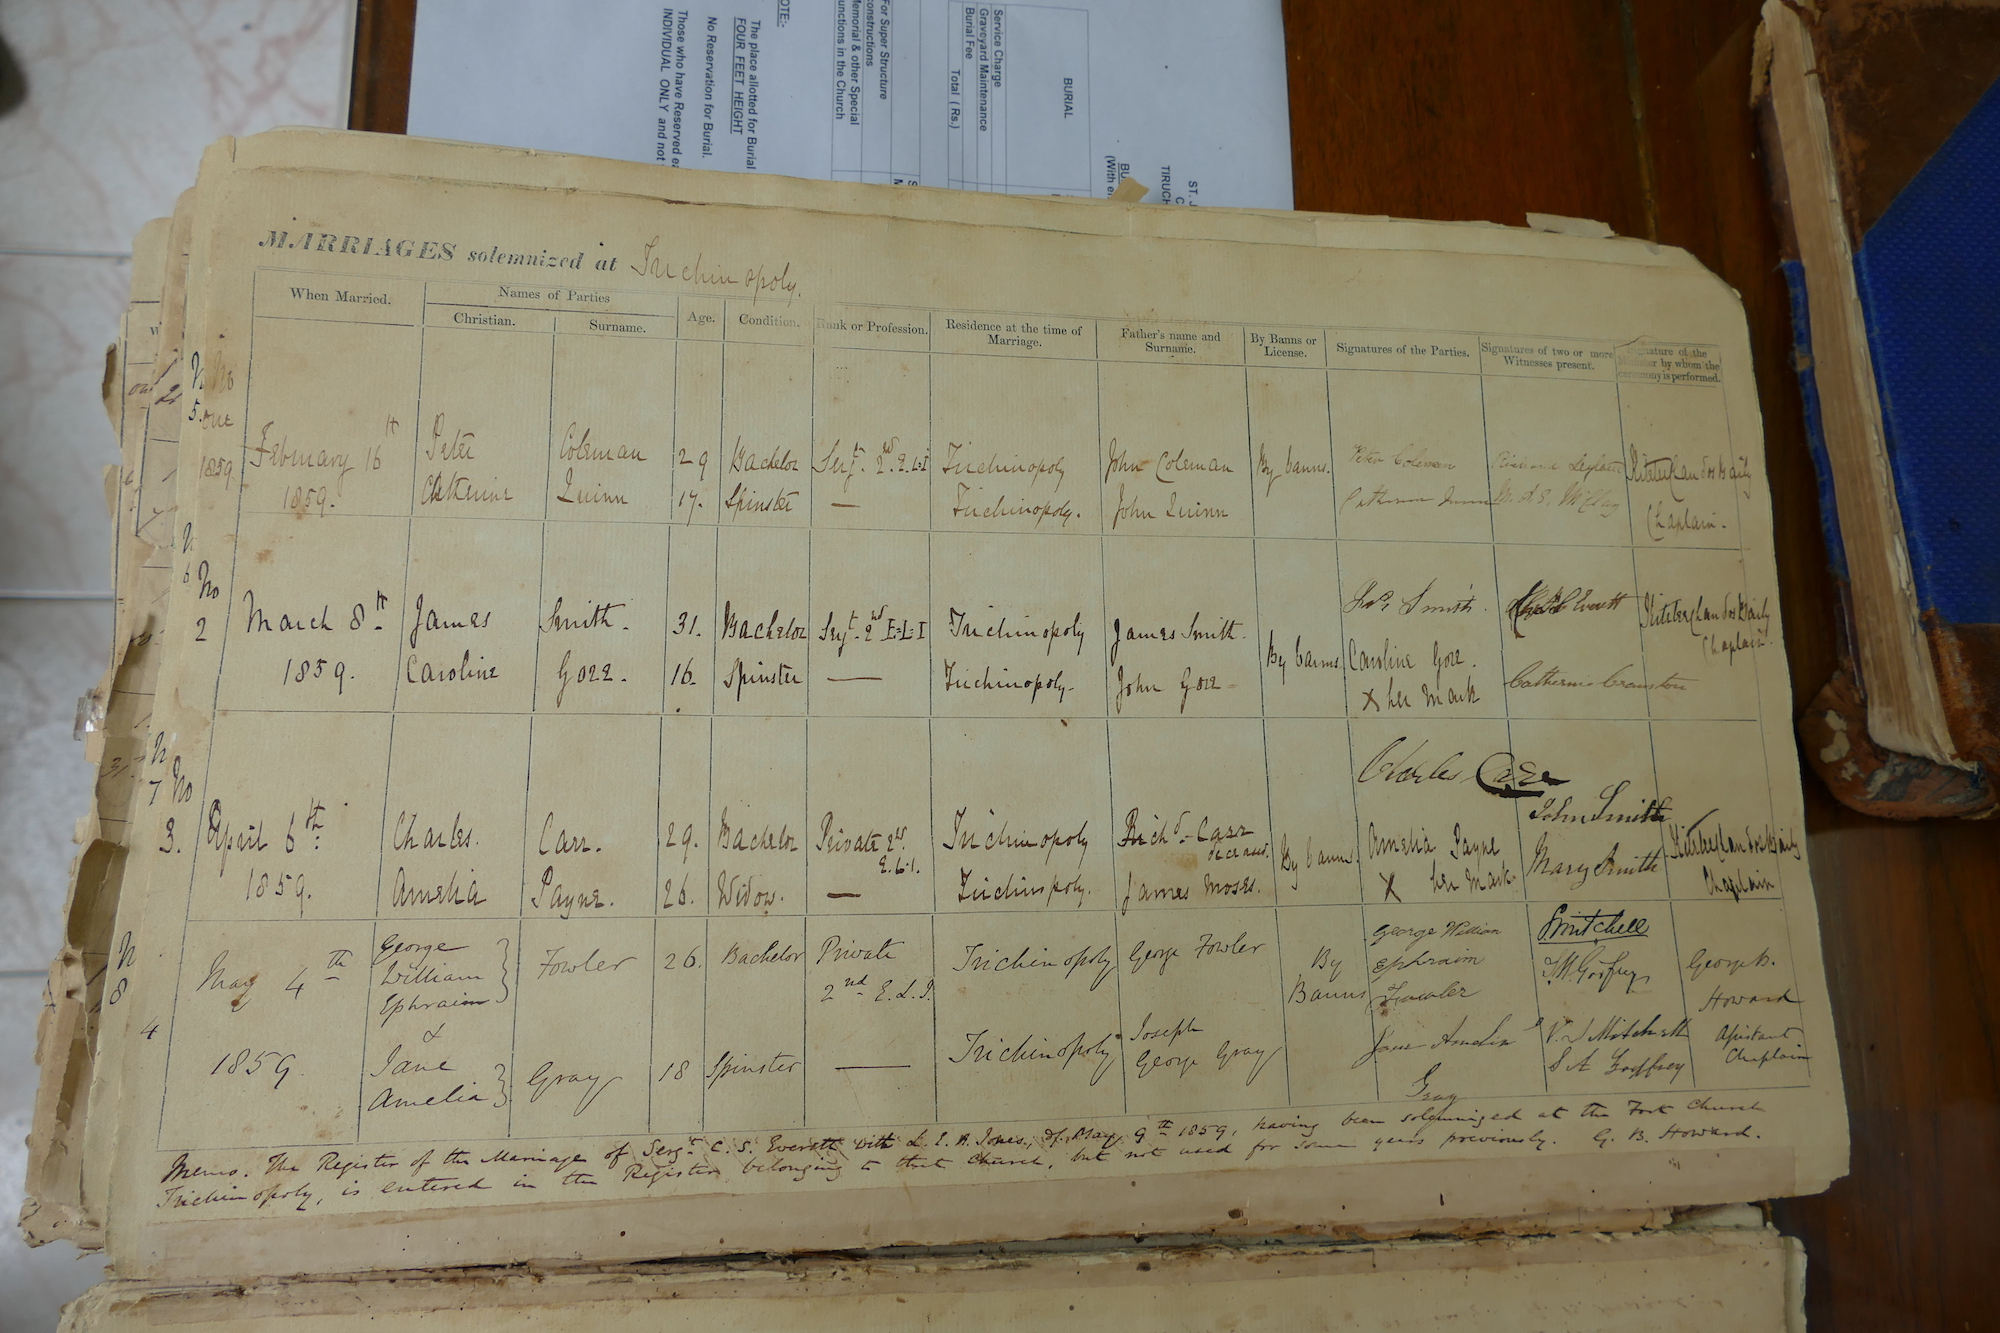 NOTE:-
The place allotted for Burial
FOUR FEET HEIGHT
No Reservation for Burial.
Those who have Reserved
INDIVIDUAL ONLY and not
For Super Structure
constructions
Memorial & other Special
functions in the Church
Service Charge
Graveyard Maintenance
Burial Fee
Total ( Rs.)
BURIAL
ST. J
TIRUCH
MARRIAGES solemnized at Trichinopoly.
When Married.
Names of Parties
Christian.
Surname.
Age.
Condition.
Rank or Profession.
Residence at the time of
Marriage.
Father's name and
Surname.
By Banns or
License.
Signatures of the Parties.
Signatures of two or more
Witnesses present.
Signature of the
by whom the
ceremony is performed.
No
one
1859
February 16th Peter Coleman 29 Bachelor Sergt. 2nd E.L.I Trichinopoly John Coleman By banns. Peter Coleman
1859. Catherine Quinn 17. Spinster — Trichinopoly. John Quinn Catherine Quinn
Chaplain.
No
2
March 8th James Smith. 31. Bachelor Sergt. 2nd E.L.I Trichinopoly James Smith. Jas Smith. Everett
1859. Caroline Gorr. 16. Spinster — Trichinopoly. John Gorr By banns. Caroline Gorr. Catherine Cranston
X her mark
Chaplain
No
3.
April 6th Charles. Carr. 29. Bachelor Private 2nd E.L.I. Trichinopoly Richd. Carr deceased. By banns. Charles Carr John Smith
1859. Amelia Payne. 26. Widow. — Trichinopoly. James Moses. Amelia Payne Mary Smith
X her mark
Chaplain
4
May 4th George William Ephraim Fowler 26. Bachelor Private 2nd E.L.I. Trichinopoly George Fowler By Banns George William Ephraim Fowler
&
1859 Jane Amelia Gray 18 Spinster — Trichinopoly Joseph George Gray Jane Amelia Gray
George B.
Howard
Assistant
Chaplain
Memo. The Register of the Marriage of Sergt. C. S. Everett with L. E. A. Jones, of May 9th 1859, having been solemnized at the Fort Church
Trichinopoly, is entered in the Register belonging to that Church, but not used for some years previously. G. B. Howard.